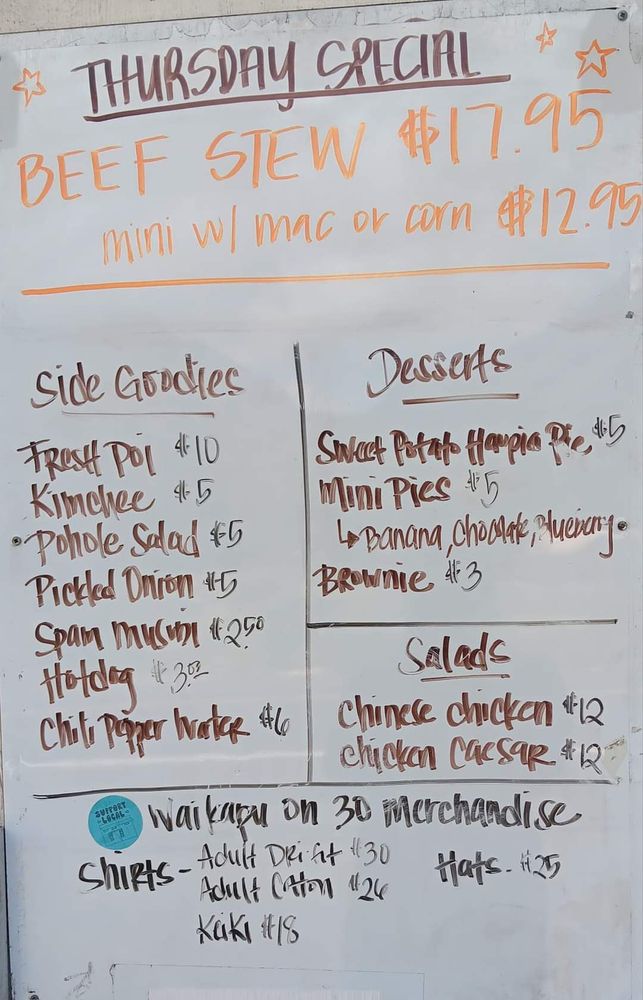 THURSDAY SPECIAL
BEEF STEW $17.95
mini w/ mac or corn $12.95
Side Goodies
FRESH POI $10
Kimchee $5
Pohole Salad $5
Pickled Onion $5
Spam musubi $2.50
Hotdog $3.00
Chili Pepper Water $6
Desserts
Sweet Potato Haupia Pie $5
Mini Pies $5
↳ Banana, Chocolate, Blueberry
Brownie $3
Salads
Chinese chicken $12
chicken Caesar $12
SUPPORT LOCAL
Waikapu on 30 Merchandise
Shirts - Adult Dri fit $30
Adult Cotton $26
Keiki $18
Hats - $25